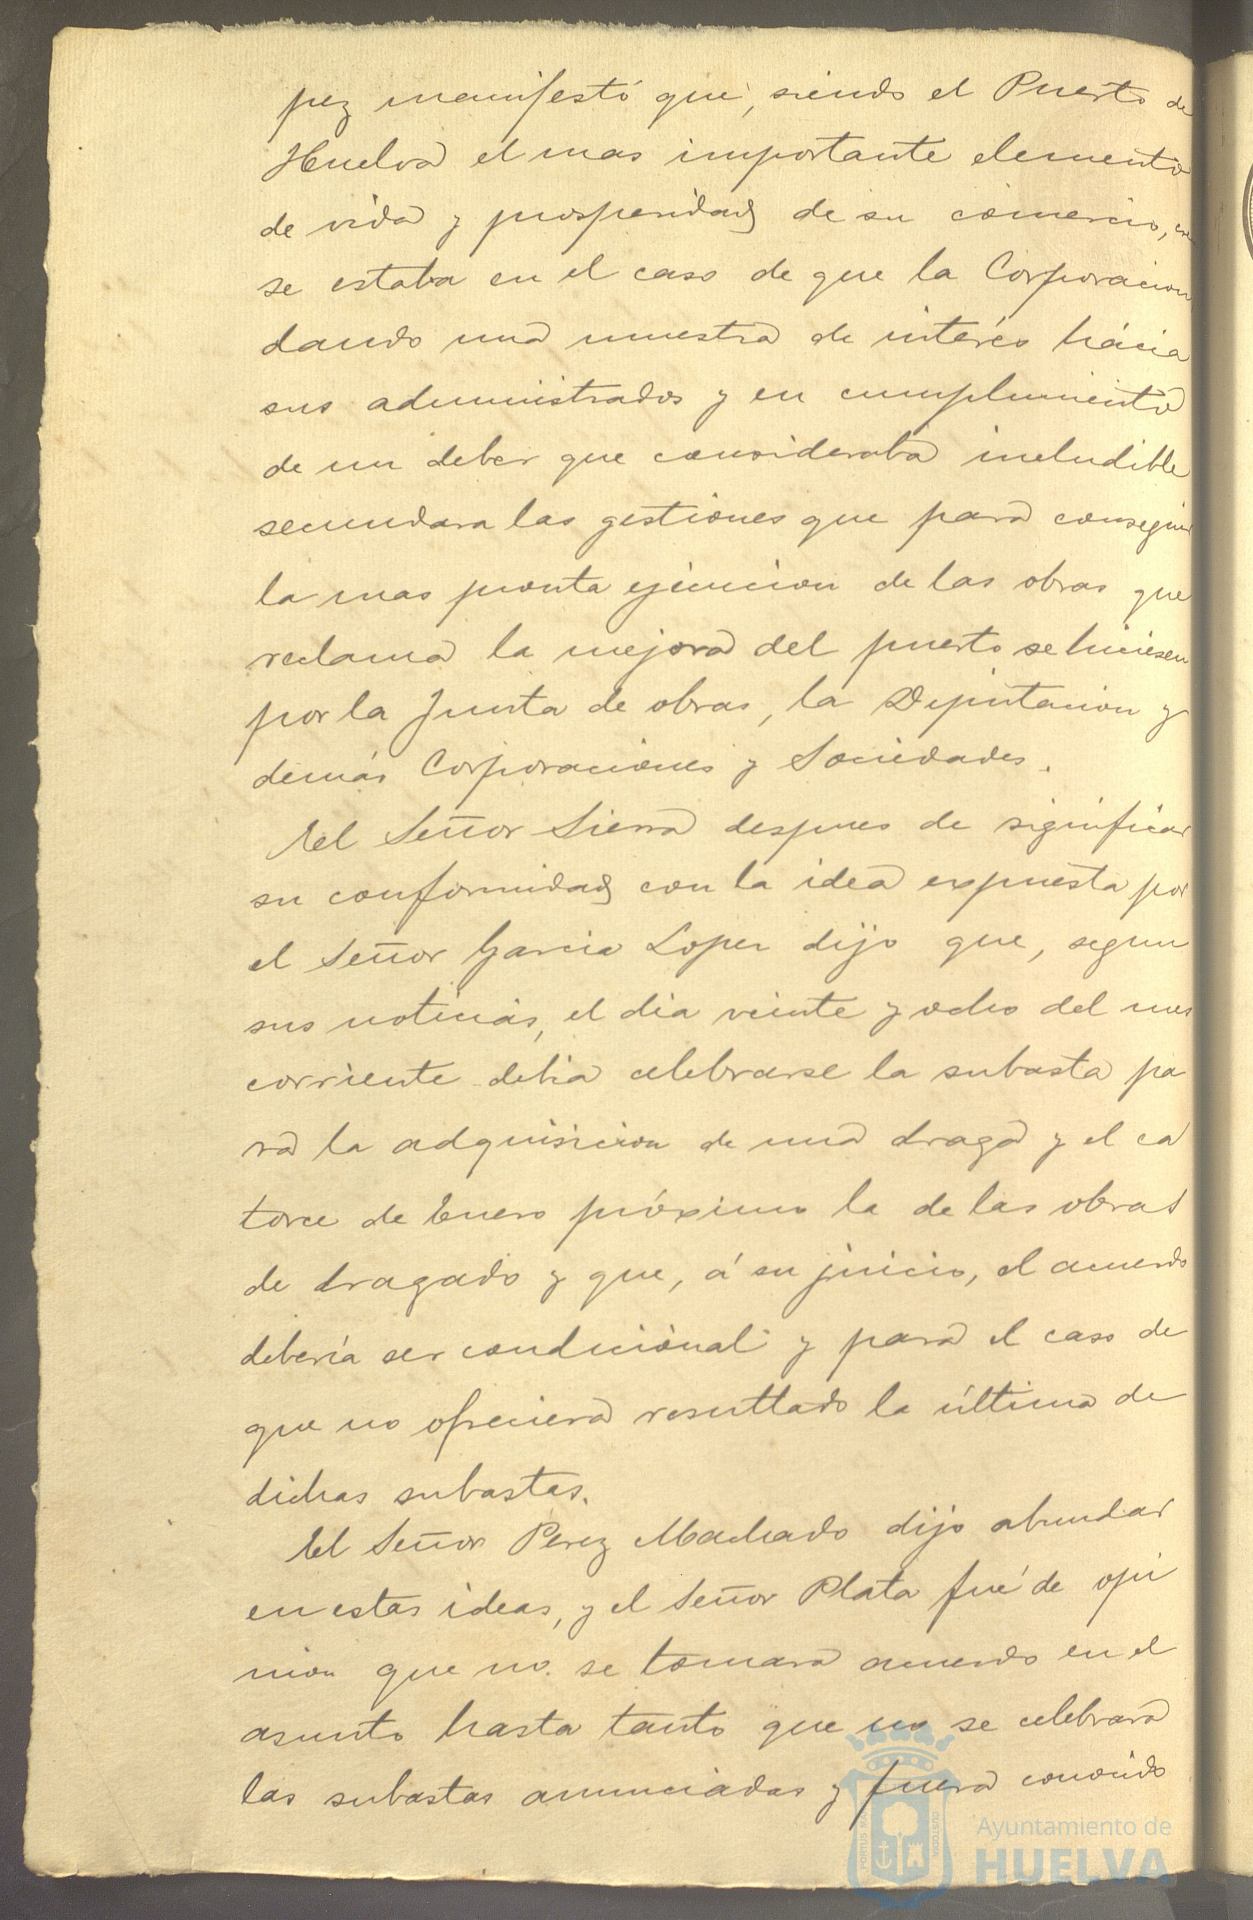 pez manifestó que, siendo el Puerto de
Huelva el mas importante elemento
de vida y prosperidad de su comercio,
se estaba en el caso de que la Corporacion
dando una muestra de interés hácia
sus administrados y en cumplimiento
de un deber que consideraba ineludible
secundara las gestiones que para conseguir
la mas pronta ejecucion de las obras que
reclama la mejora del puerto se hiciesen
por la Junta de obras, la Diputacion y
demás Corporaciones y Sociedades.
El Señor Sierra despues de significar
su conformidad con la idea expuesta por
el Señor Garcia Lopez dijo que, segun
sus noticias, el dia veinte y ocho del mes
corriente debia celebrarse la subasta pa
ra la adquisicion de una draga y el ca
torce de Enero próximo la de las obras
de dragado y que, á su juicio, el acuerdo
debería ser condicional y para el caso de
que no ofreciera resultado la última de
dichas subastas.
El Señor Perez Machado dijo abundar
en estas ideas, y el Señor Plata fué de opi
nion que no se tomara acuerdo en el
asunto hasta tanto que no se celebrara
las subastas anunciadas y fuera conocido
Ayuntamiento de
HUELVA